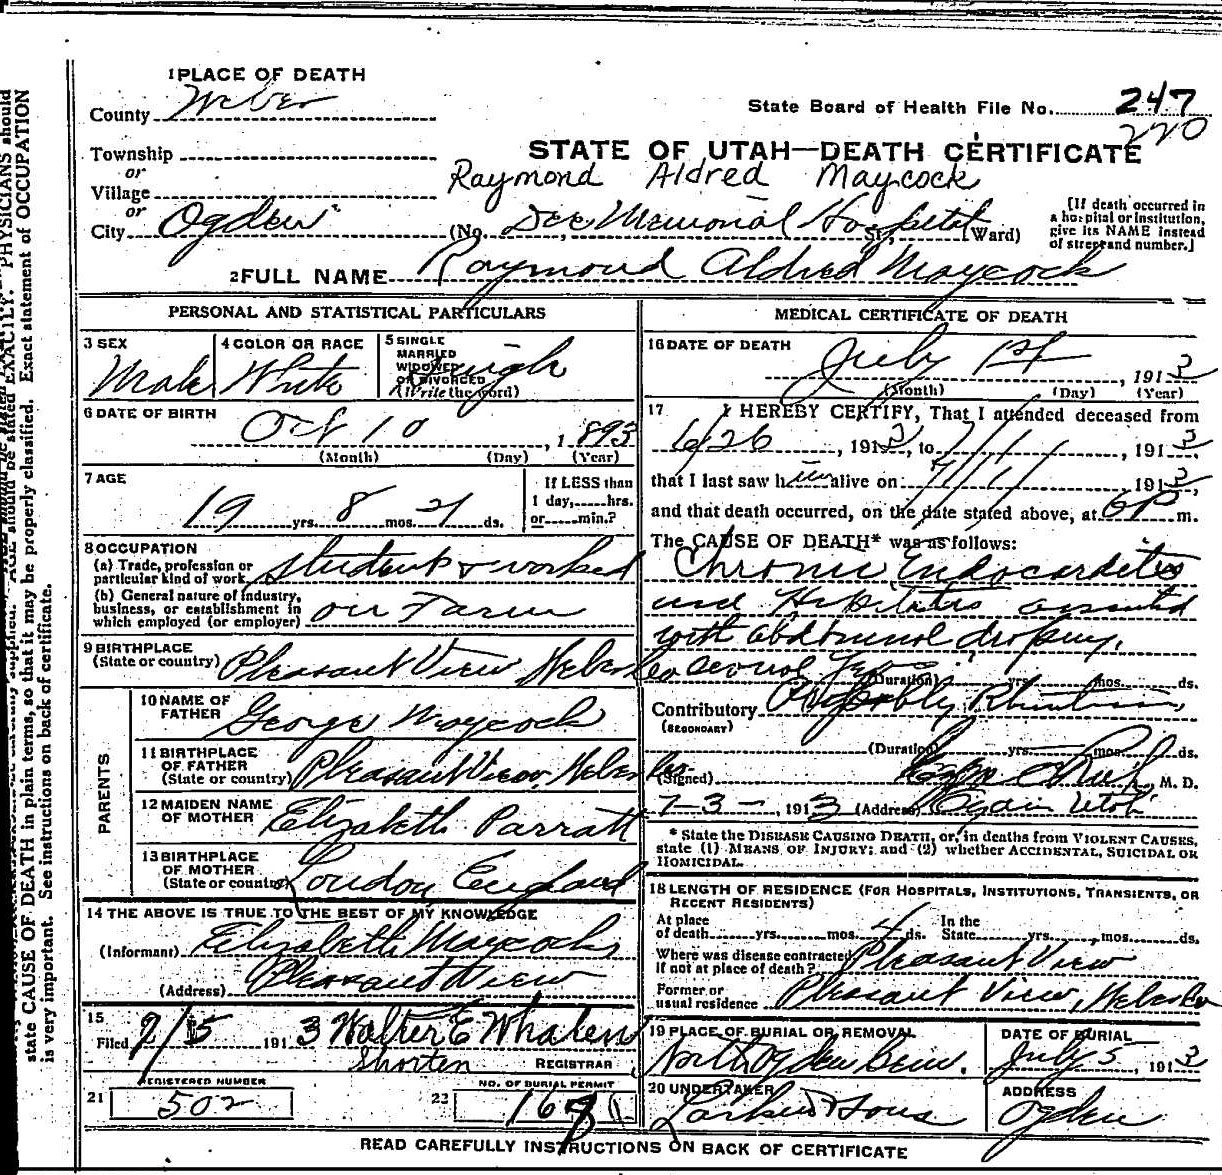 1 PLACE OF DEATH
County Weber
State Board of Health File No. 247
220
Township
or
Village
or
City Ogden
STATE OF UTAH—DEATH CERTIFICATE
Raymond Aldred Maycock
(No. Dee Memorial Hospital St., Ward)
[If death occurred in
a hospital or institution,
give its NAME instead
of street and number.]
2 FULL NAME Raymond Aldred Maycock
PERSONAL AND STATISTICAL PARTICULARS
3 SEX
Male
4 COLOR OR RACE
White
5 SINGLE
MARRIED
WIDOWED
OR DIVORCED
(Write the word)
6 DATE OF BIRTH
Oct 10, 1893
(Month) (Day) (Year)
7 AGE
19 yrs. 8 mos. 21 ds.
If LESS than
1 day, hrs.
or min.?
8 OCCUPATION
(a) Trade, profession or
particular kind of work student & worked
(b) General nature of industry,
business, or establishment in
which employed (or employer) on Farm
9 BIRTHPLACE
(State or country) Pleasant View, Weber Co
PARENTS
10 NAME OF
FATHER George Maycock
11 BIRTHPLACE
OF FATHER
(State or country) Pleasant View, Weber Co.
12 MAIDEN NAME
OF MOTHER Elizabeth Parratt
13 BIRTHPLACE
OF MOTHER
(State or country) London England
14 THE ABOVE IS TRUE TO THE BEST OF MY KNOWLEDGE
(Informant) Elizabeth Maycock
(Address) Pleasant View
15
Filed 7/5 1913 Walter E Whalen
Shorten REGISTRAR
REGISTERED NUMBER
21 502
NO. OF BURIAL PERMIT
22
MEDICAL CERTIFICATE OF DEATH
16 DATE OF DEATH
July 1st, 1913
(Month) (Day) (Year)
17 I HEREBY CERTIFY, That I attended deceased from
6/26, 1913, to 7/1/, 1913
that I last saw him alive on 7/1/ 1913,
and that death occurred, on the date stated above, at 6 P m.
The CAUSE OF DEATH* was as follows:
Chronic Endocarditis
and associated
with abdominal dropsy,
several
(Duration) yrs. mos. ds.
Contributory Probably
(SECONDARY)
(Duration) yrs. mos. ds.
(Signed) M. D.
7-3-, 1913 (Address) Ogden Utah
* State the DISEASE CAUSING DEATH, or, in deaths from VIOLENT CAUSES,
state (1) MEANS OF INJURY; and (2) whether ACCIDENTAL, SUICIDAL OR
HOMICIDAL.
18 LENGTH OF RESIDENCE (FOR HOSPITALS, INSTITUTIONS, TRANSIENTS, OR
RECENT RESIDENTS)
At place
of death yrs. mos. ds. In the
State yrs. mos. ds.
Where was disease contracted
if not at place of death? Pleasant View
Former or
usual residence Pleasant View, Weber Co
19 PLACE OF BURIAL OR REMOVAL
North Ogden Cem.
DATE OF BURIAL
July 5, 1913
20 UNDERTAKER
Larkin & Sons
ADDRESS
Ogden
READ CAREFULLY INSTRUCTIONS ON BACK OF CERTIFICATE
PHYSICIANS should
state CAUSE OF DEATH in plain terms, so that it may be properly classified. Exact statement of OCCUPATION
is very important. See instructions on back of certificate.